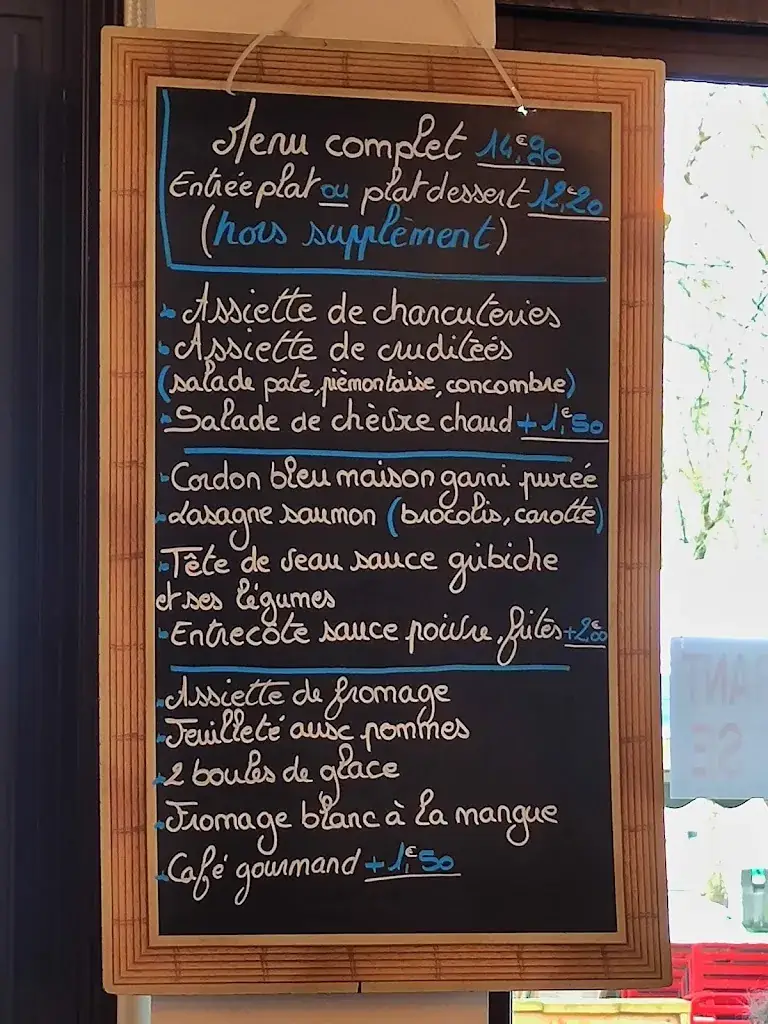 Menu complet 14,€90
Entrée plat ou plat dessert 12,€20
(hors supplèment)
- Assiette de charcuteries
- Assiette de cruditeés
(salade pate, pièmontaise, concombre)
- Salade de chèvre chaud +1,€50
- Cordon bleu maison garni purée
- Lasagne saumon (brocolis, carotte)
- Tête de veau sauce gribiche
et ses légumes
- Entrecôte sauce poivre, frites +2,€00
- Assiette de fromage
- Feuilleté aux pommes
- 2 boules de glace
- Fromage blanc à la mangue
- Café gourmand +1,€50
RANT
SE